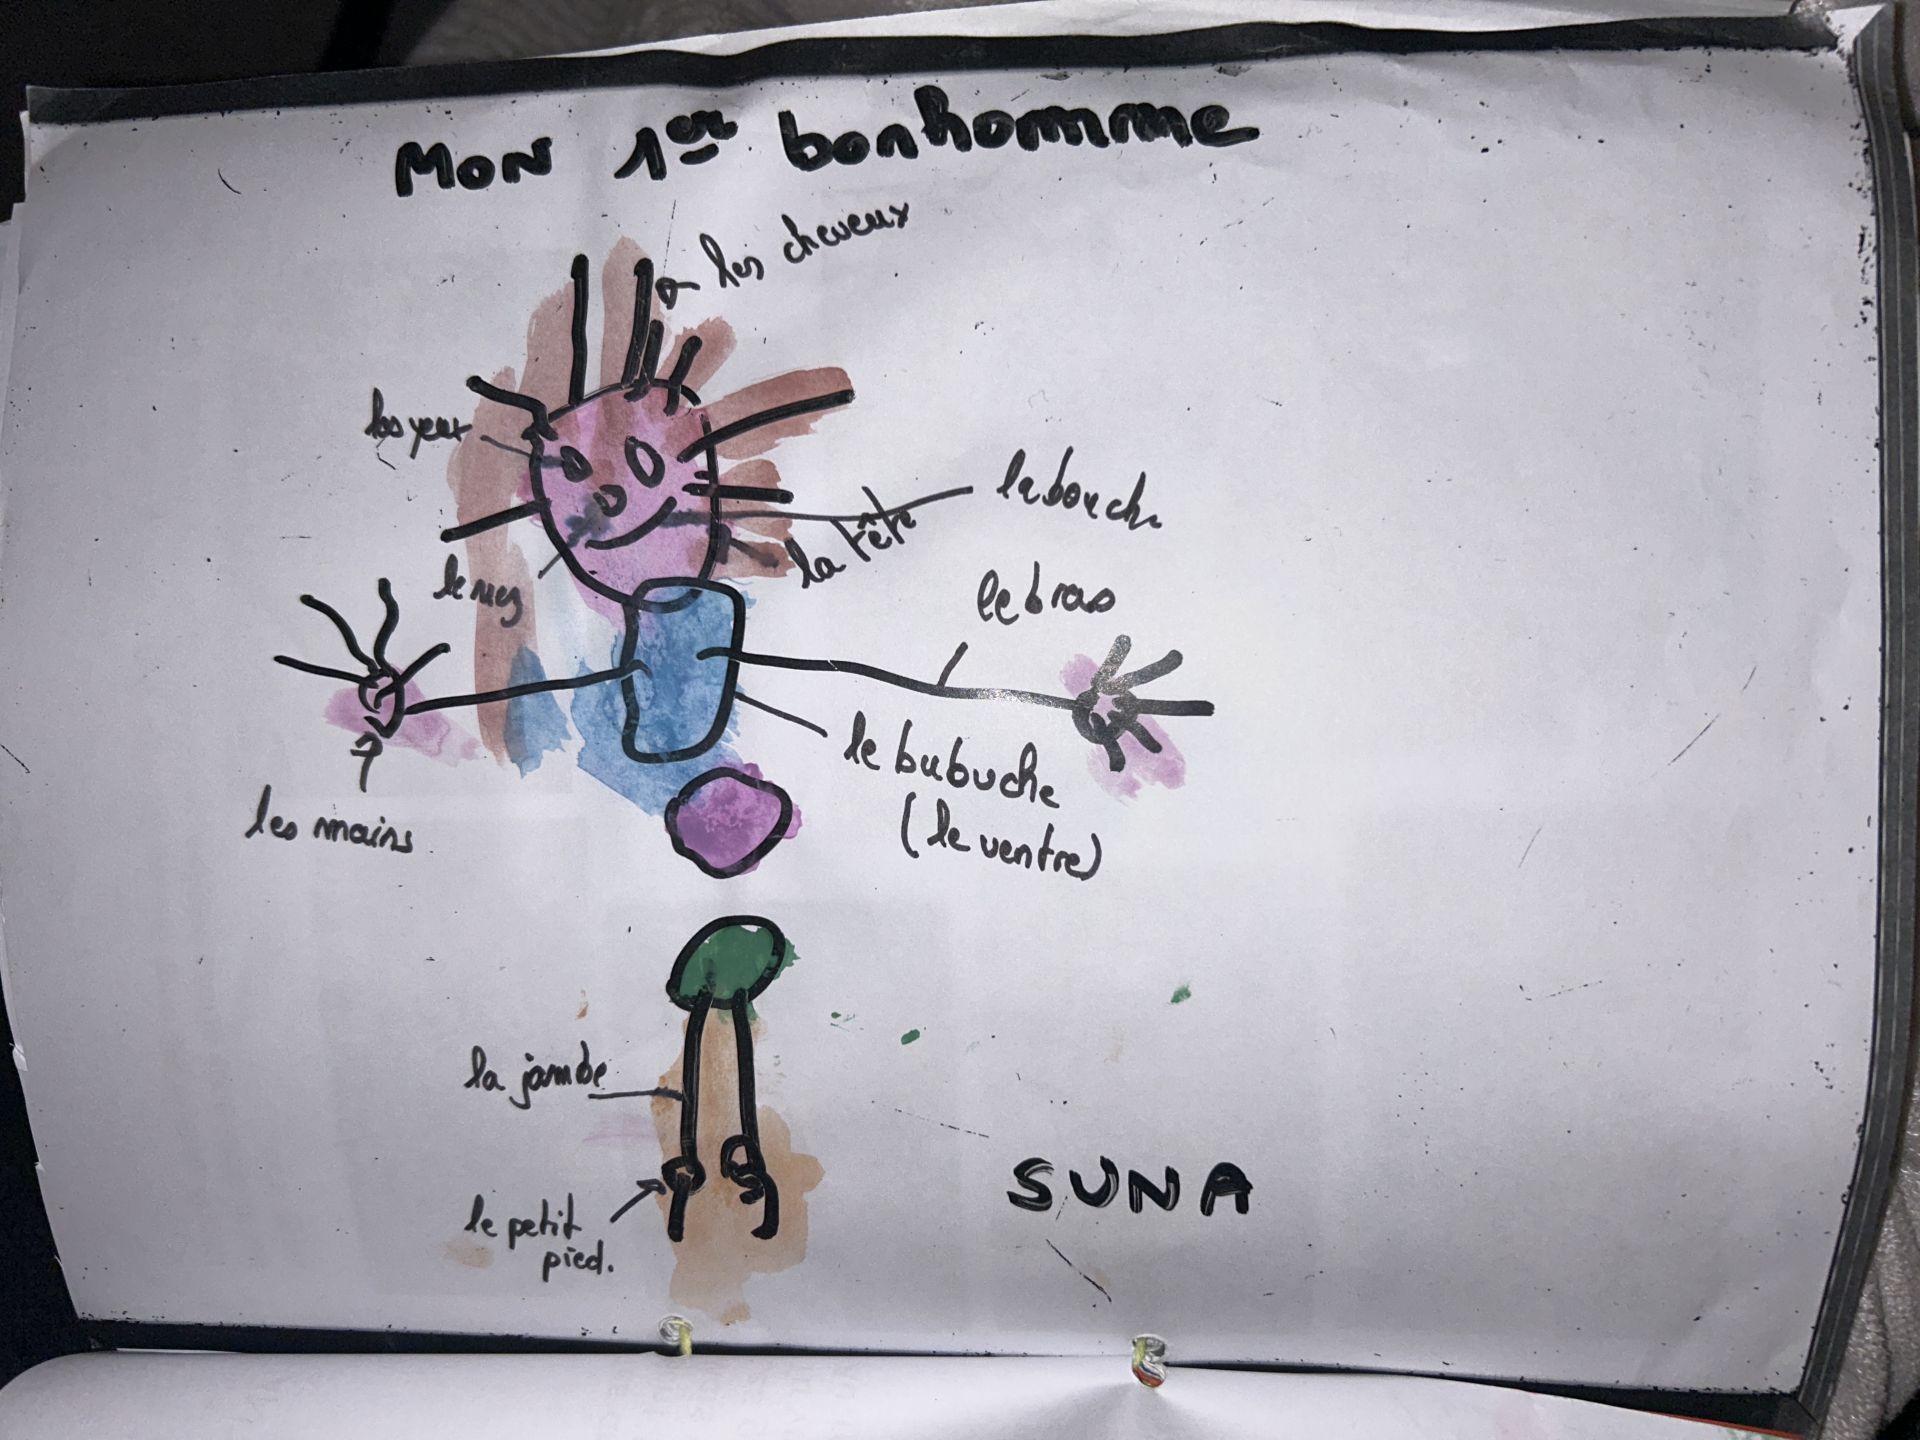 Mon 1er bonhomme
les cheveux
les yeux
la bouche
la tête
le nez
le bras
le bubuche
(le ventre)
les mains
la jambe
le petit
pied.
SUNA